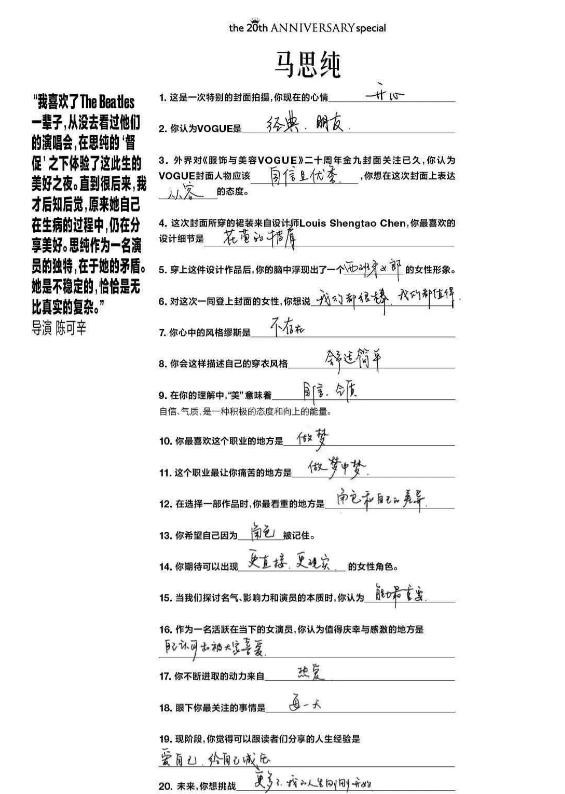 the 20th ANNIVERSARY special
马思纯
“我喜欢了The Beatles
一辈子,从没去看过他们
的演唱会,在思纯的‘督
促’之下体验了这此生的
美好之夜。直到很后来,我
才后知后觉,原来她自己
在生病的过程中,仍在分
享美好。思纯作为一名演
员的独特,在于她的矛盾。
她是不稳定的,恰恰是无
比真实的复杂。”
导演 陈可辛
1. 这是一次特别的封面拍摄,你现在的心情 开心
2. 你认为VOGUE是 经典、朋友.
3. 外界对《服饰与美容VOGUE》二十周年金九封面关注已久,你认为
VOGUE封面人物应该 自信且优秀 ,你想在这次封面上表达
从容 的态度。
4. 这次封面所穿的裙装来自设计师Louis Shengtao Chen,你最喜欢的
设计细节是 花苞的裙摆
5. 穿上这件设计作品后,你的脑中浮现出了一个 西班牙女郎 的女性形象。
6. 对这次一同登上封面的女性,你想说 我们都很棒、我们都值得.
7. 你心中的风格缪斯是 不存在
8. 你会这样描述自己的穿衣风格 舒适简单
9. 在你的理解中,“美”意味着 自信、气质
自信、气质,是一种积极的态度和向上的能量。
10. 你最喜欢这个职业的地方是 做梦
11. 这个职业最让你痛苦的地方是 做梦中梦.
12. 在选择一部作品时,你最看重的地方是 角色和自己的差异
13. 你希望自己因为 角色 被记住。
14. 你期待可以出现 更直接、更现实. 的女性角色。
15. 当我们探讨名气、影响力和演员的本质时,你认为 能力最重要.
16. 作为一名活跃在当下的女演员,你认为值得庆幸与感激的地方是
自己认可也被大家喜爱.
17. 你不断进取的动力来自 热爱
18. 眼下你最关注的事情是 每一天
19. 现阶段,你觉得可以跟读者们分享的人生经验是
爱自己、给自己减压
20. 未来,你想挑战 更多了、我的人生刚刚开始